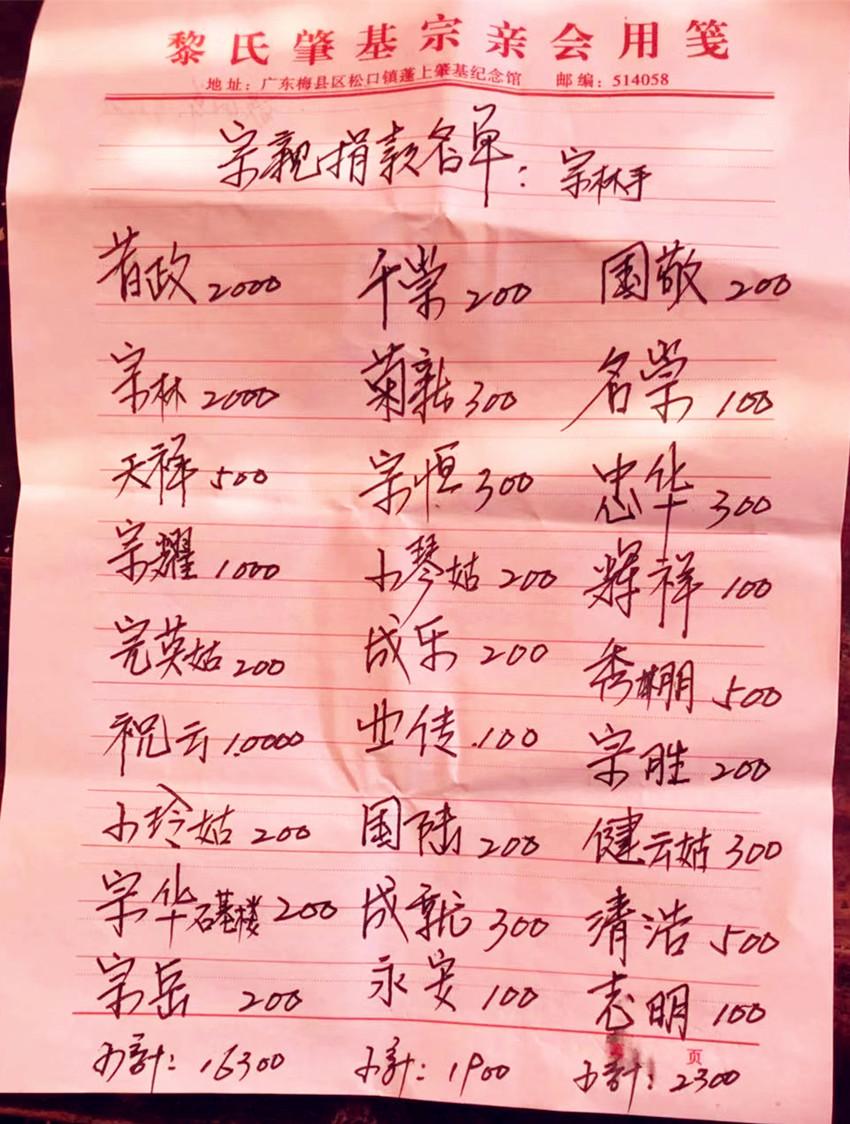 黎氏肇基宗亲会用笺
地址：广东梅县区松口镇蓬上肇基纪念馆 邮编：514058
宗亲捐款名单：宗林手
昔政 2000 千崇 200 国敬 200
宗林 2000 菊新 300 名崇 100
天祥 500 宗恒 300 忠华 300
宗耀 1000 小琴姑 200 辉祥 100
完英姑 200 成乐 200 秀棚 500
祝云 10000 业传 100 宗胜 200
小玲姑 200 国陆 200 健云姑 300
宗华 石基楼 200 成就 300 清浩 500
宗岳 200 永安 100 志明 100
页
小計：16300 小計：1900 小計：2300